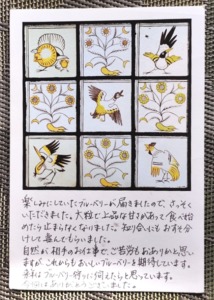 楽しみにしていたブルーベリーが届きましたので、さっそく
いただきました。大粒で上品な甘さがあって食べ始め
たら止まらなくなりました。知り合いにもおすそ分
けして喜んでもらいました。
自然が相手のお仕事で、ご苦労もおありかと思い
ますが、これからもおいしいブルーベリーを期待しています。
来年はブルーベリー狩りに伺えたらと思っています。
ありがとうございました。